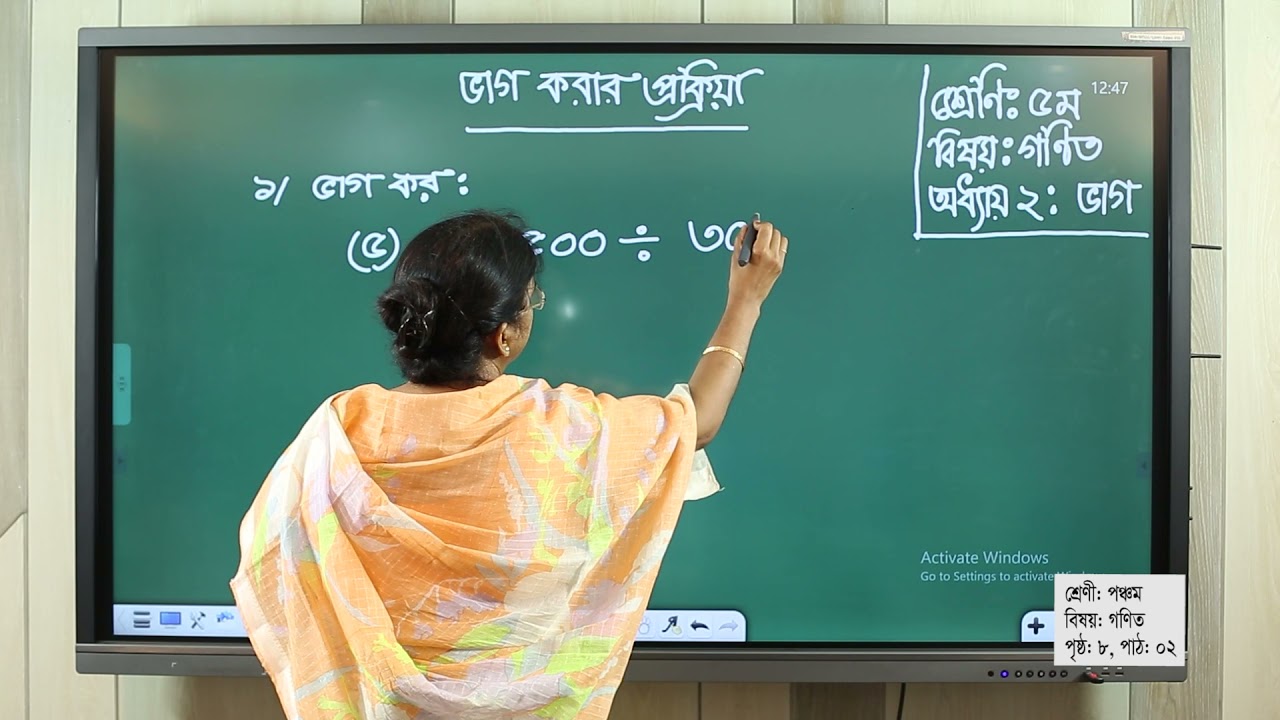 ভাগ করার প্রক্রিয়া
শ্রেণিঃ ৫ম
12:47
বিষয়ঃ গণিত
অধ্যায় ২ঃ ভাগ
১/ ভাগ কর :
(৫) ০০ ÷ ৩
Activate Windows
Go to Settings to activate
শ্রেণী: পঞ্চম
বিষয়: গণিত
পৃষ্ঠ: ৮, পাঠ: ০২